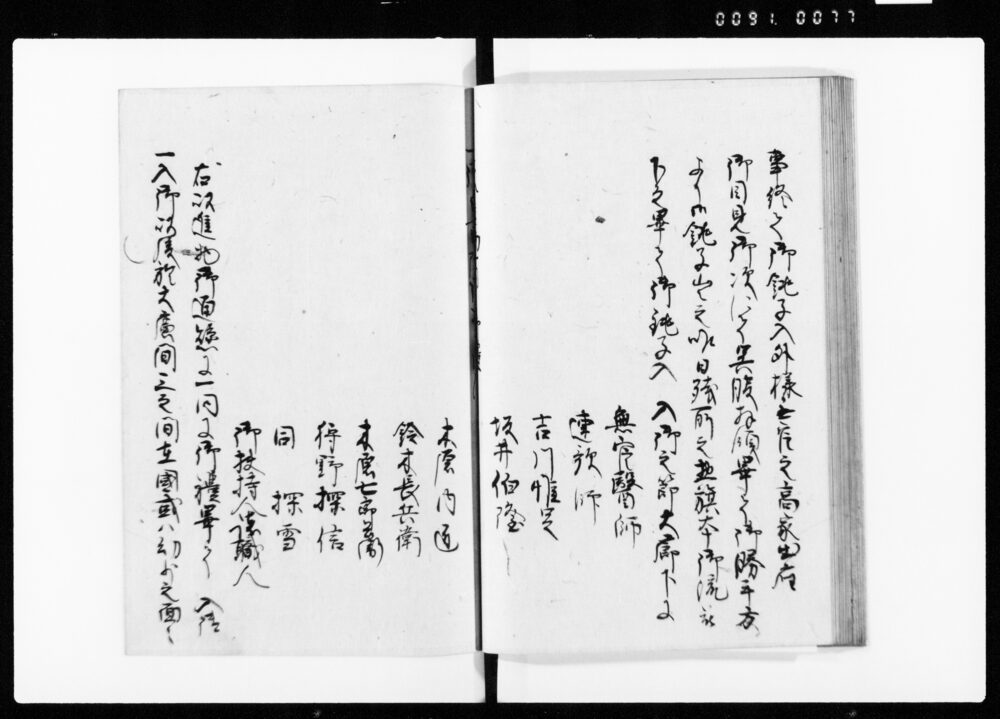 0091.0077
事終而御銚子入外様無官之高家出座
御目見御次ニ而呉服拝領畢而御勝手方
より御銚子出之昨日残所之無旗本御流被
下之畢而御銚子入 入御之節大廊下に
無官醫師
連歌師
吉川惟足
坂井伯隆
木原内匠
鈴木長兵衛
木原七郎兵衛
狩野探信
同 探雪
御扶持人諸職人
右以進物御通懸に一同に御禮畢而 入御
一入御以後於大廣間三之間在國或ハ幼少之面々